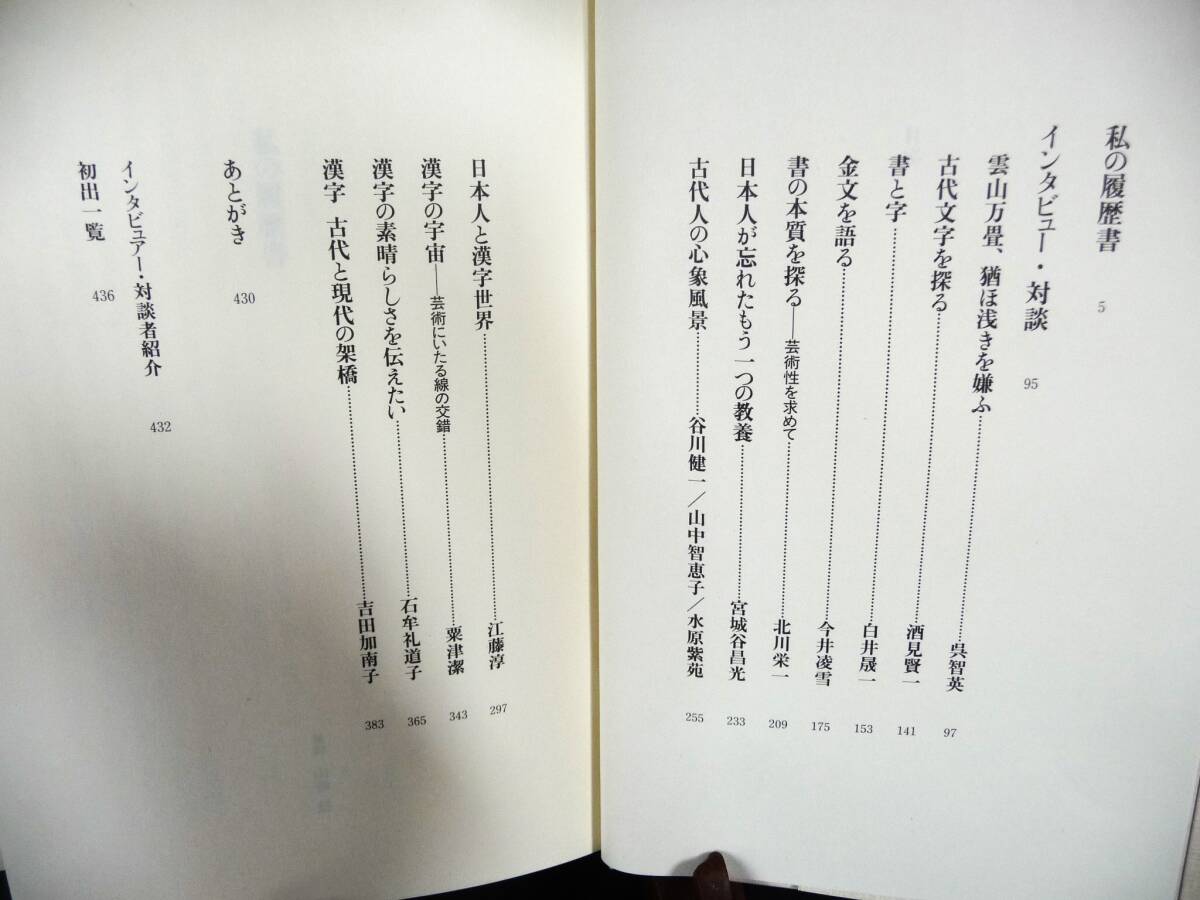 私の履歴書 5
インタビュー・対談 95
雲山万畳、猶ほ浅きを嫌ふ………呉智英 97
古代文字を探る………酒見賢一 141
書と字………白井晟一 153
金文を語る………今井凌雪 175
書の本質を探る――芸術性を求めて………北川栄一 209
日本人が忘れたもう一つの教養………宮城谷昌光 233
古代人の心象風景………谷川健一／山中智恵子／水原紫苑 255
日本人と漢字世界………江藤淳 297
漢字の宇宙――芸術にいたる線の交錯………粟津潔 343
漢字の素晴らしさを伝えたい………石牟礼道子 365
漢字 古代と現代の架橋………吉田加南子 383
あとがき 430
インタビュアー・対談者紹介 432
初出一覧 436